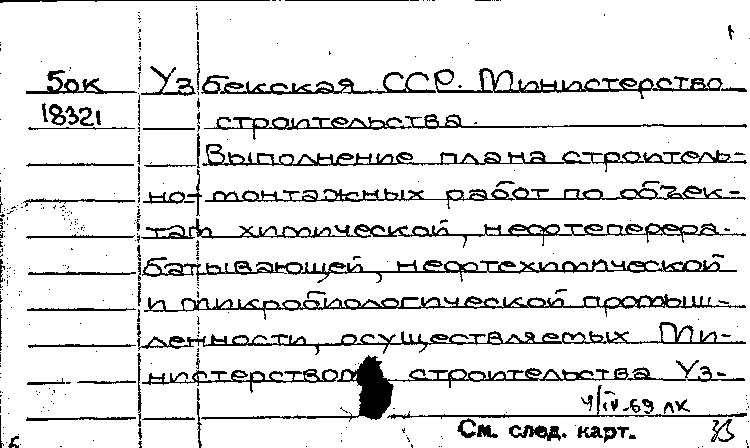 1
5ок Узбекская ССР. Министерство
18321 строительства.
Выполнение плана строитель-
но-монтажных работ по объек-
там химической, нефтеперера-
батывающей, нефтехимической
и микробиологической промыш-
ленности, осуществляемых Ми-
нистерством строительства Уз-
4/IV-69 лк
См. след. карт.